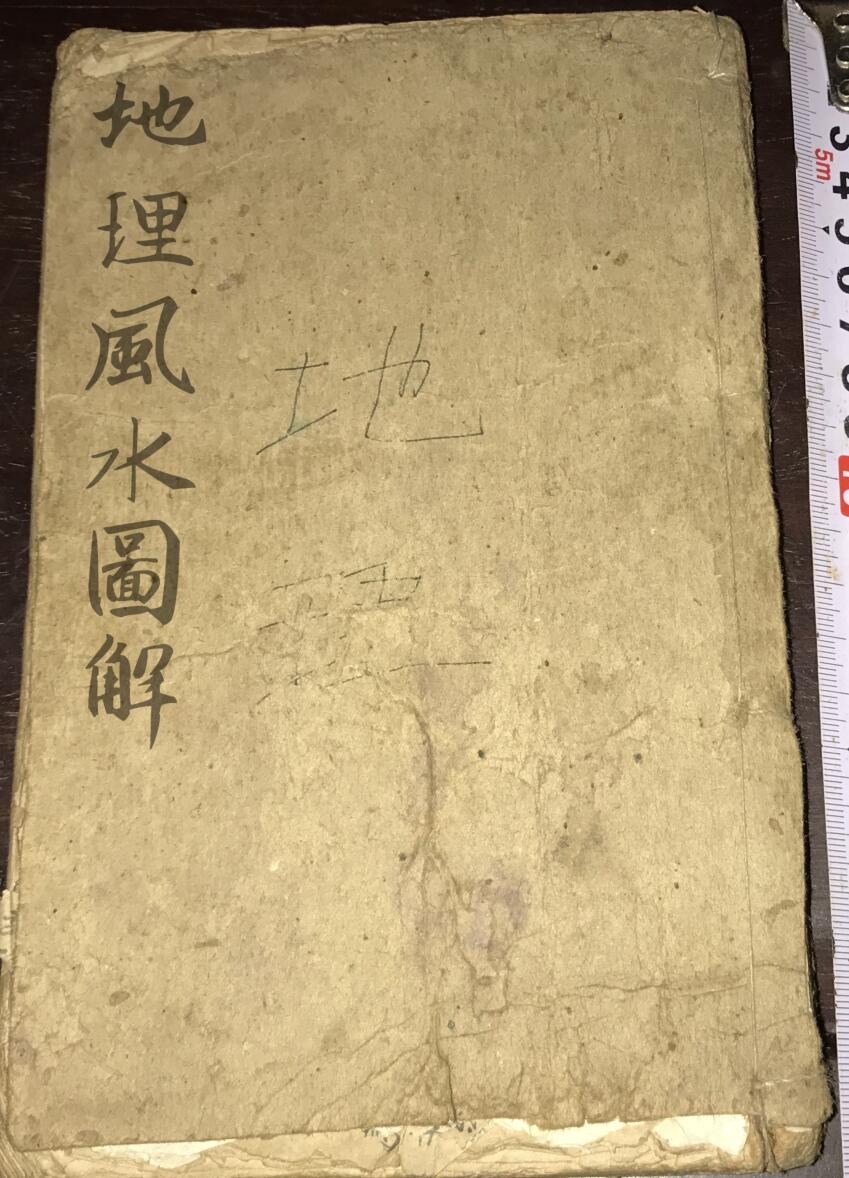 地理風水圖解
地理
5m
3 4 5 6 7 8 9 10